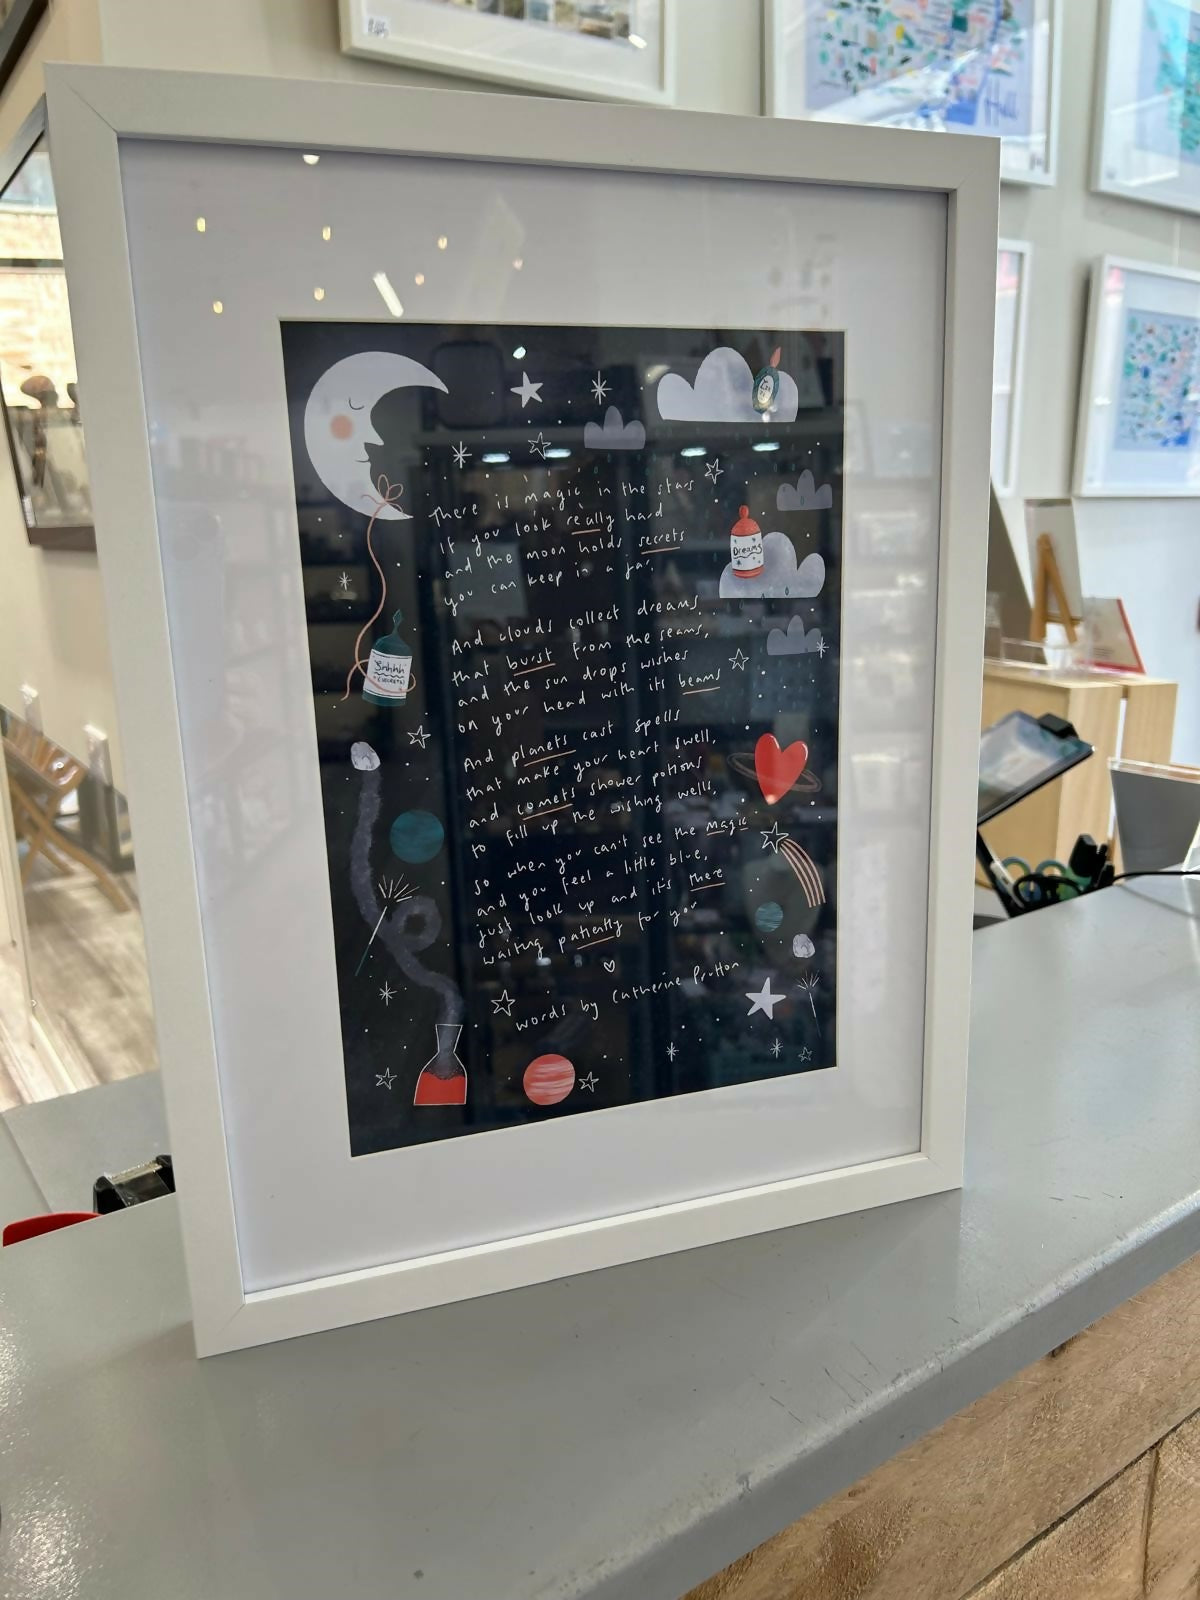 There is magic in the stars
if you look really hard
and the moon holds secrets
you can keep in a jar.
And clouds collect dreams
that burst from the seams,
and the sun drops wishes
on your head with its beams
And planets cast spells
that make your heart swell,
and comets shower potions
to fill up the wishing wells,
so when you can't see the magic
and you feel a little blue,
just look up and it's there
waiting patiently for you
words by Catherine Prutton
Dreams
Shhhh
(SECRETS)
Hull